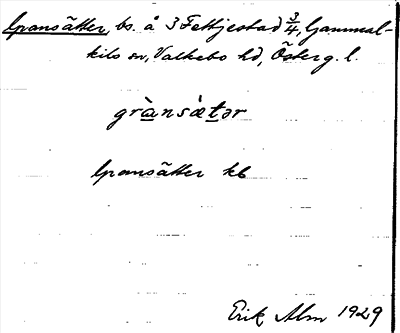 Gransätter, bs. å 3 Fettjestad 3/4, Gammal-
kils sn, Valkebo hd, Österg. l.
grànsæ̀tər
Gransätter kb
Erik Alm 1929